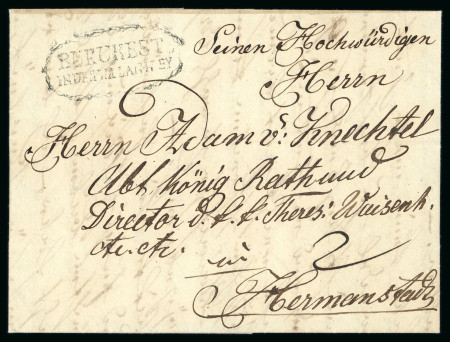 BERCKEST.
Seinen Hochwürdigen
Herrn
Herrn Adam v: Knechtel
Abt König Rath und
Director d. k. k. Theres: Waisenh.
etc. etc.
in
Hermanstadt